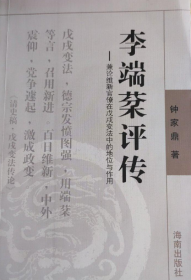 李端棻评传
——兼论维新官僚在戊戌变法中的地位与作用
钟家鼎 著
戊戌变法，德宗发愤图强，用端棻
等言，召用新进，百日维新，中外
震仰，党争遽起，激成政变
《清史稿·戊戌变法传论》
海南出版社